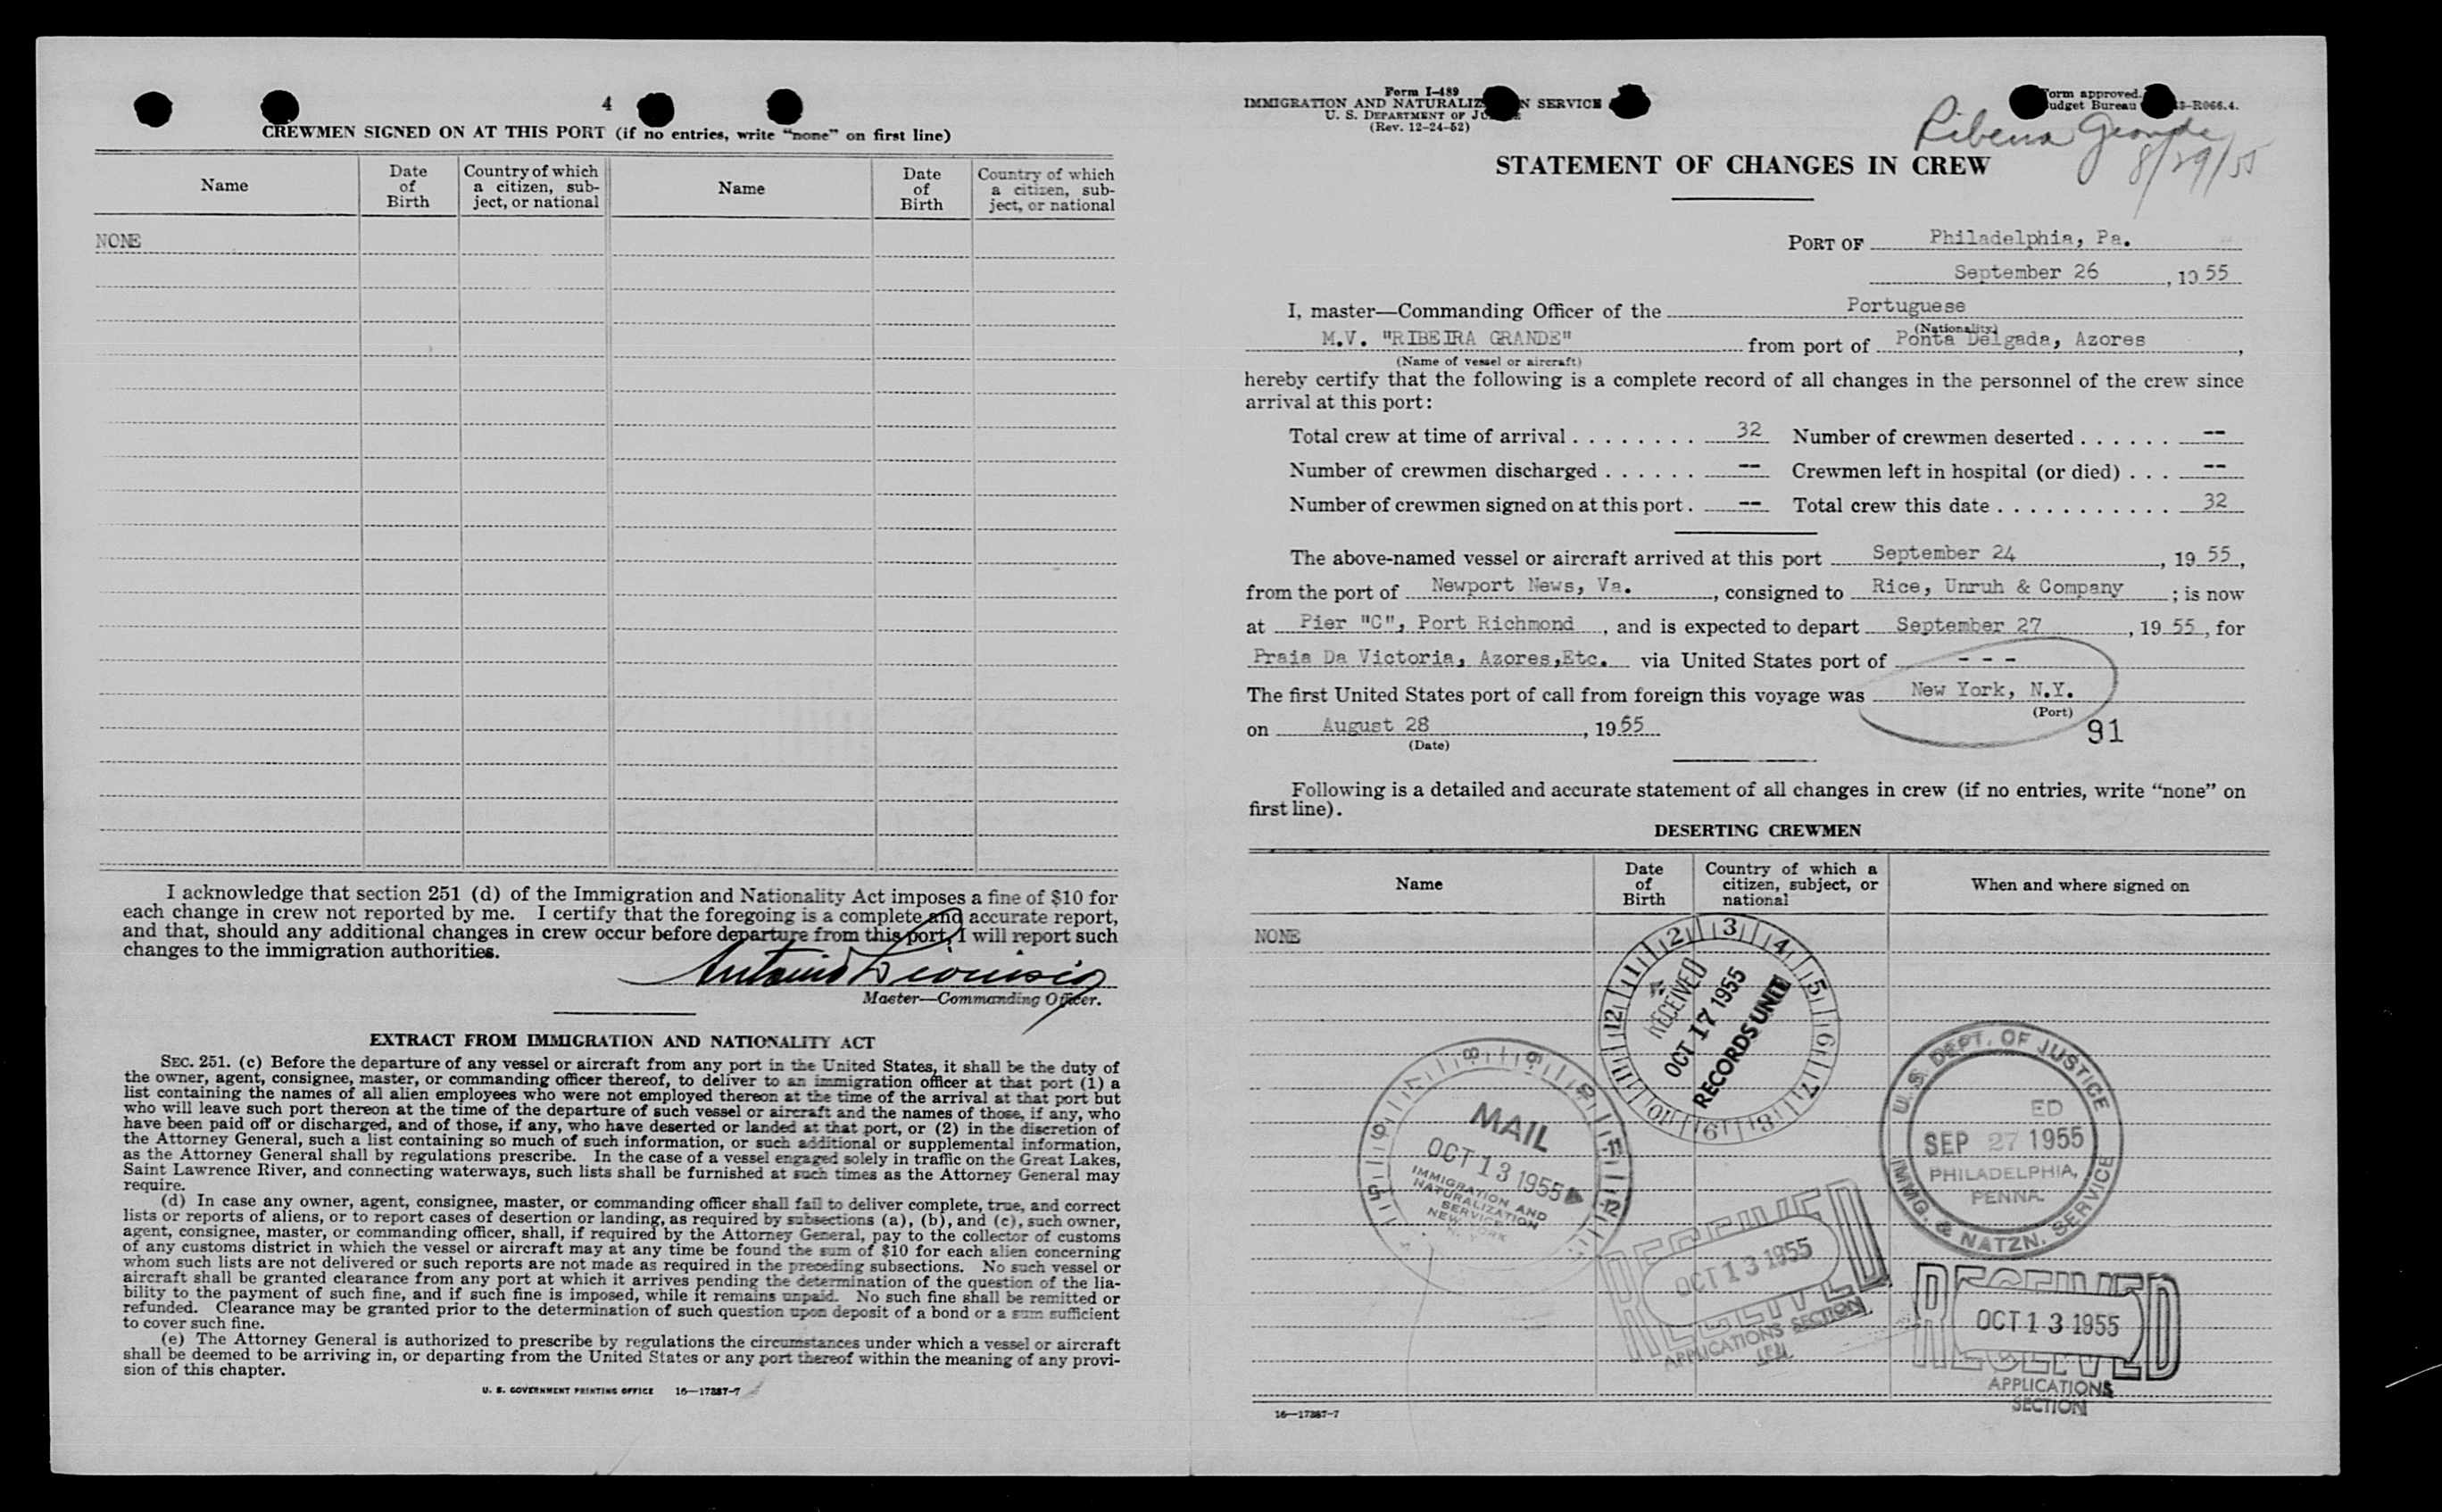 4
CREWMEN SIGNED ON AT THIS PORT (if no entries, write "none" on first line)
Name
Date of Birth
Country of which a citizen, subject, or national
Name
Date of Birth
Country of which a citizen, subject, or national
NONE
I acknowledge that section 251 (d) of the Immigration and Nationality Act imposes a fine of $10 for
each change in crew not reported by me. I certify that the foregoing is a complete and accurate report,
and that, should any additional changes in crew occur before departure from this port, I will report such
changes to the immigration authorities.
Antonio Dionisio
Master—Commanding Officer.
EXTRACT FROM IMMIGRATION AND NATIONALITY ACT
SEC. 251. (c) Before the departure of any vessel or aircraft from any port in the United States, it shall be the duty of
the owner, agent, consignee, master, or commanding officer thereof, to deliver to an immigration officer at that port (1) a
list containing the names of all alien employees who were not employed thereon at the time of the arrival at that port but
who will leave such port thereon at the time of the departure of such vessel or aircraft and the names of those, if any, who
have been paid off or discharged, and of those, if any, who have deserted or landed at that port, or (2) in the discretion of
the Attorney General, such a list containing so much of such information, or such additional or supplemental information,
as the Attorney General shall by regulations prescribe. In the case of a vessel engaged solely in traffic on the Great Lakes,
Saint Lawrence River, and connecting waterways, such lists shall be furnished at such times as the Attorney General may
require.
(d) In case any owner, agent, consignee, master, or commanding officer shall fail to deliver complete, true, and correct
lists or reports of aliens, or to report cases of desertion or landing, as required by subsections (a), (b), and (c), such owner,
agent, consignee, master, or commanding officer, shall, if required by the Attorney General, pay to the collector of customs
of any customs district in which the vessel or aircraft may at any time be found the sum of $10 for each alien concerning
whom such lists are not delivered or such reports are not made as required in the preceding subsections. No such vessel or
aircraft shall be granted clearance from any port at which it arrives pending the determination of the question of the lia-
bility to the payment of such fine, and if such fine is imposed, while it remains unpaid. No such fine shall be remitted or
refunded. Clearance may be granted prior to the determination of such question upon deposit of a bond or a sum sufficient
to cover such fine.
(e) The Attorney General is authorized to prescribe by regulations the circumstances under which a vessel or aircraft
shall be deemed to be arriving in, or departing from the United States or any port thereof within the meaning of any provi-
sion of this chapter.
U. S. GOVERNMENT PRINTING OFFICE 16—17387-7
Form I-489
IMMIGRATION AND NATURALIZ N SERVICE
U. S. DEPARTMENT OF JU E
(Rev. 12-24-52)
orm approved.
udget Bureau -R066.4.
Ribeira Grande
8/29/55
STATEMENT OF CHANGES IN CREW
PORT OF Philadelphia, Pa.
September 26, 1955
I, master—Commanding Officer of the Portuguese
(Nationality)
M.V. "RIBEIRA GRANDE" from port of Ponta Delgada, Azores,
(Name of vessel or aircraft)
hereby certify that the following is a complete record of all changes in the personnel of the crew since
arrival at this port:
Total crew at time of arrival ........ 32 Number of crewmen deserted ...... --
Number of crewmen discharged ...... -- Crewmen left in hospital (or died) ... --
Number of crewmen signed on at this port. -- Total crew this date ........... 32
The above-named vessel or aircraft arrived at this port September 24, 1955,
from the port of Newport News, Va., consigned to Rice, Unruh & Company; is now
at Pier "C", Port Richmond, and is expected to depart September 27, 1955, for
Praia Da Victoria, Azores,Etc. via United States port of - - -
The first United States port of call from foreign this voyage was New York, N.Y.
(Port)
on August 28, 1955
(Date)
91
Following is a detailed and accurate statement of all changes in crew (if no entries, write "none" on
first line).
DESERTING CREWMEN
Name
Date of Birth
Country of which a citizen, subject, or national
When and where signed on
NONE
12 1 2 3 4 5 6 7 8 9 10 11
RECEIVED
OCT 17 1955
RECORDS UNIT
5 6 7 8 9 10 11 12
MAIL
OCT 13 1955
IMMIGRATION AND
NATURALIZATION
SERVICE
NEW YORK
U.S. DEPT. OF JUSTICE
ED
SEP 27 1955
PHILADELPHIA,
PENNA.
IMMIG. & NATZN. SERVICE
RECEIVED
OCT 13 1955
APPLICATIONS SECTION
RECEIVED
OCT 13 1955
APPLICATIONS
SECTION
16—17387-7